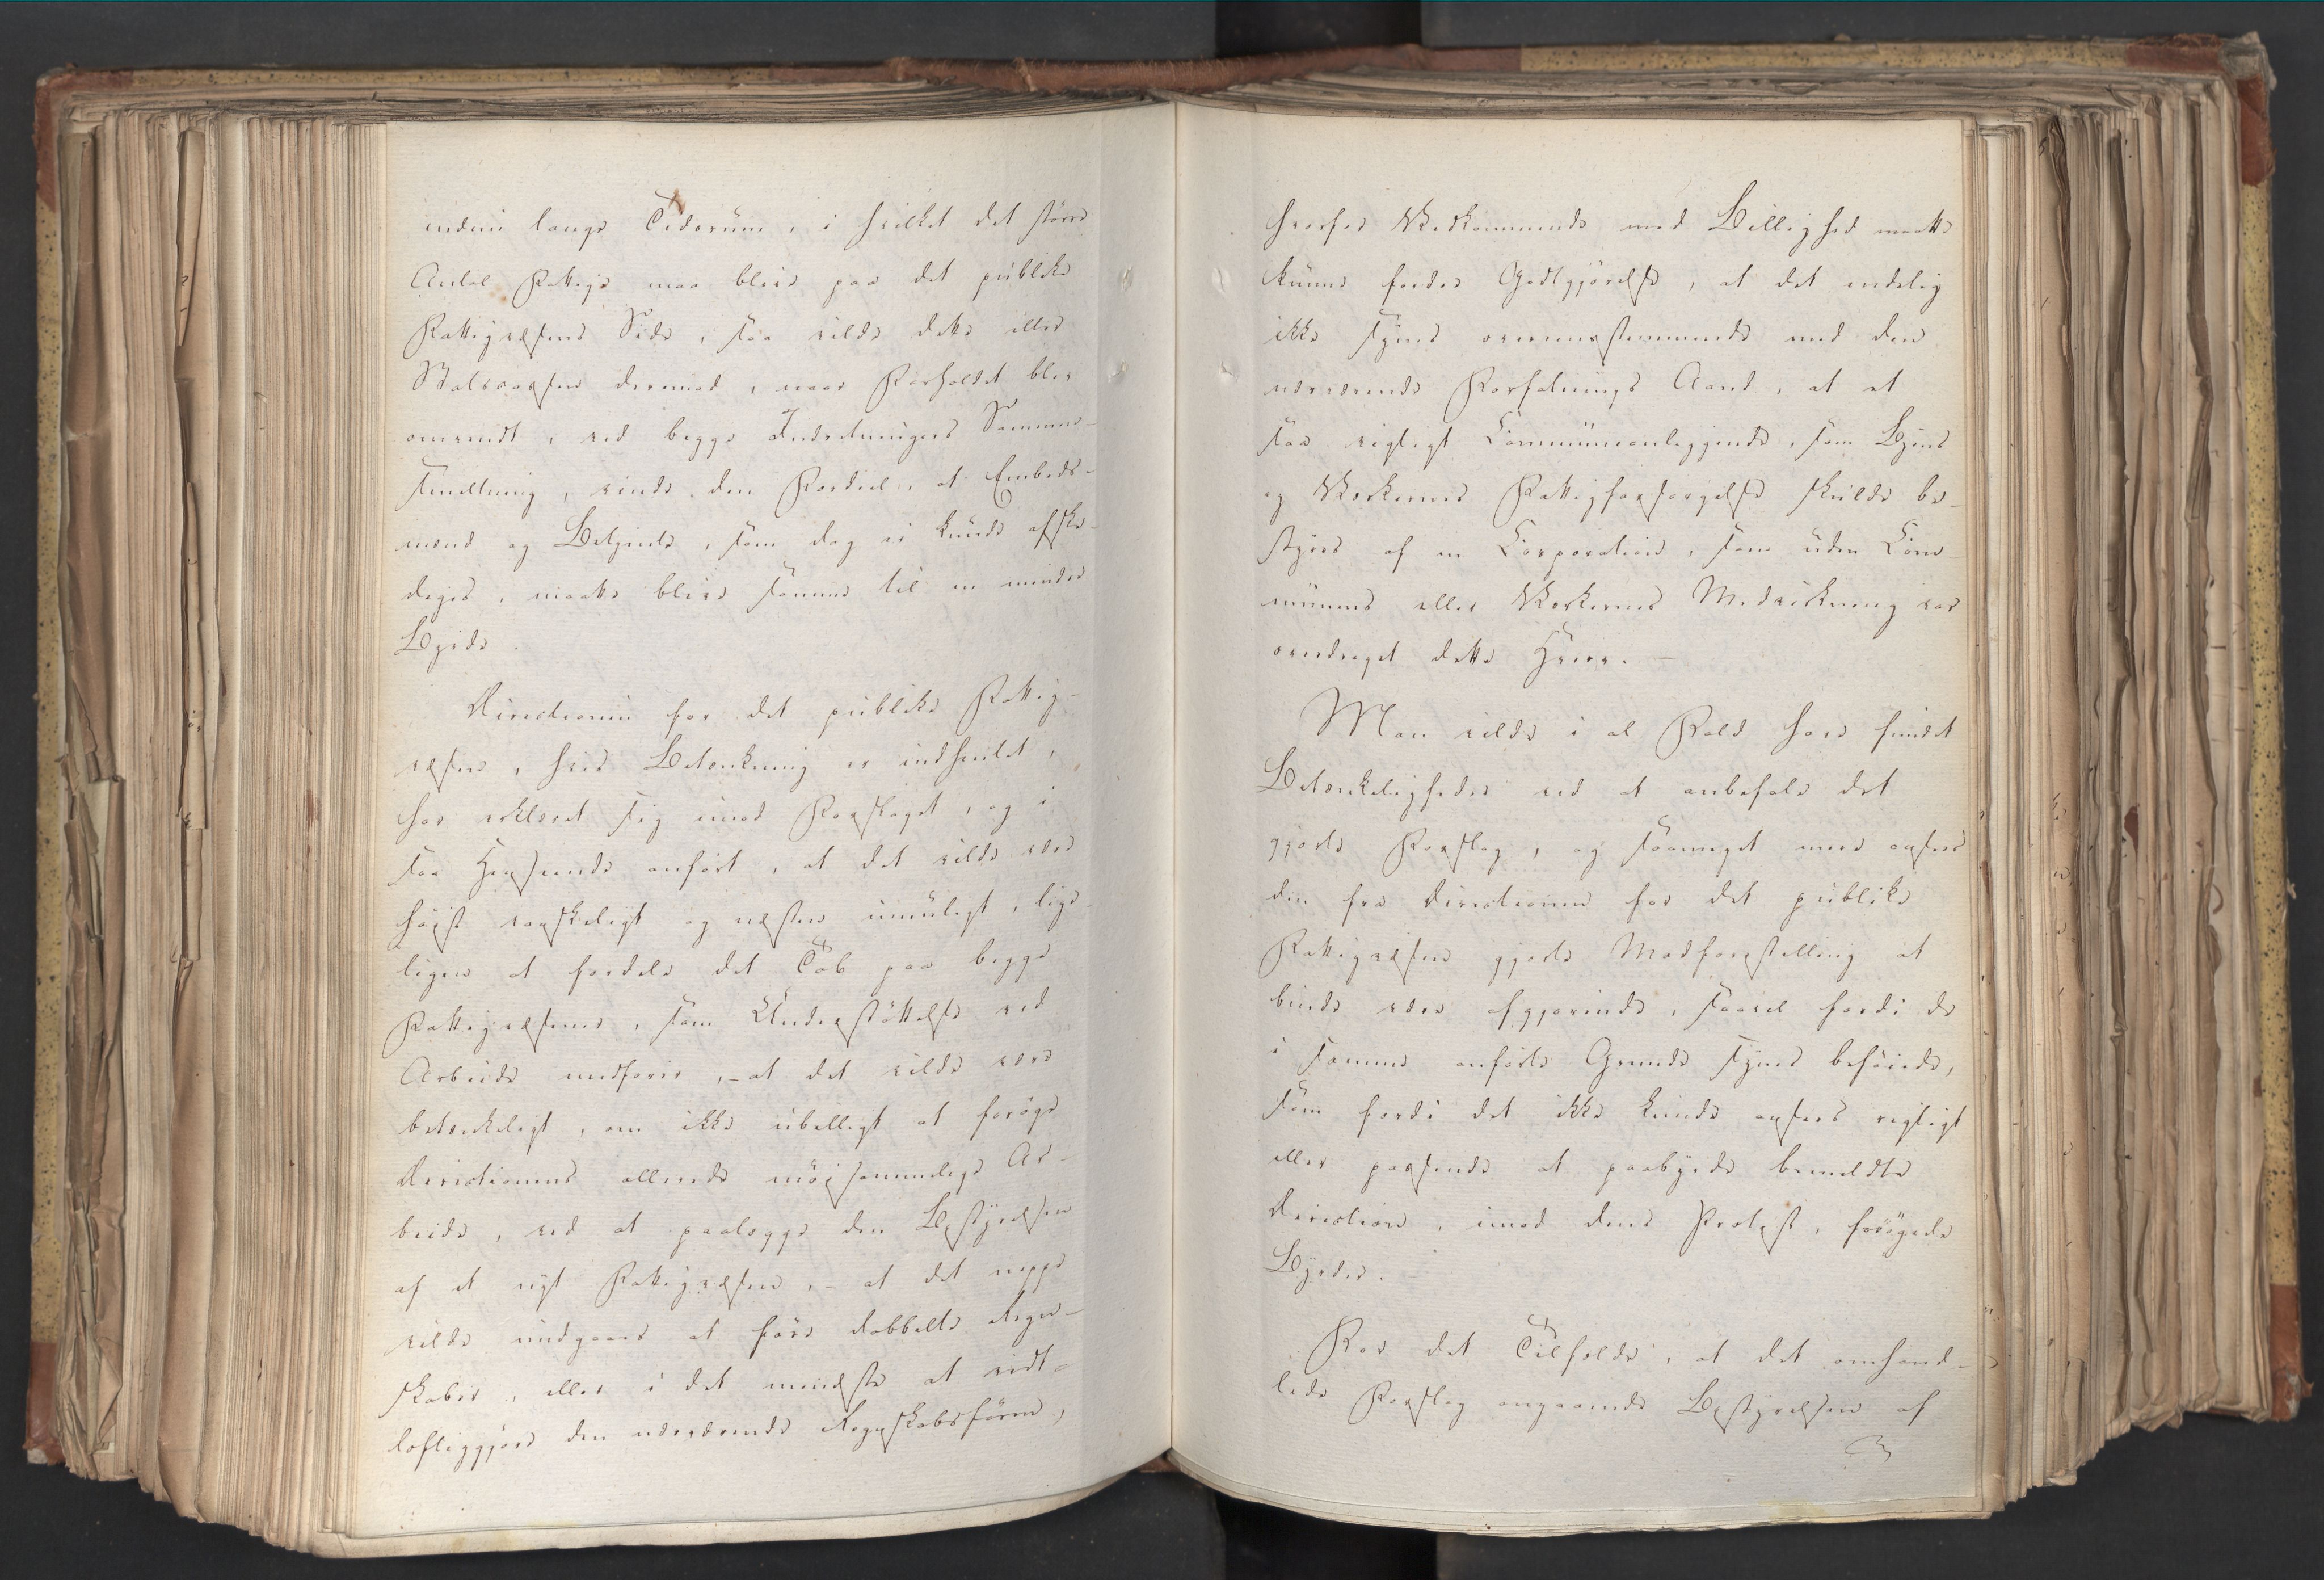 inden lange Tidsrum, i hvilket det större
Antal Fattige maa blive paa det publike
Fattigvæsens Side, saa vilde dette eller
Statscassen derimod, naar Forholdet blev
omvendt, ved begge Indretningers Sammen-
smeltning, vinde den Fordeel, at Embeds-
mænd og Betjente, som dog ei kunde afske-
diges, maatte blive samme til en mindre
Byrde.
Directionen for det publike Fattig-
væsen, hvis Betænkning er indhentet,
har erklæret sig imod Forslaget, og i
saa Henseende anfört, at det vilde være
höist vanskeligt og næsten umuligt, lige-
ligen at fordele det Tab paa begge
Fattigvæsener, som Understöttelse ved
Arbeide medförer, - at det vilde være
betænkeligt, om ikke ubilligt at foröge
Directionens allerede möisommelige Ar-
beide, ved at paalægge den Bestyrelsen
af et nyt Fattigvæsen, - at det neppe
vilde undgaaes at före dobbelte Regn-
skaber, eller i det mindste at vidt-
löftiggjöre den nærværende Regnskabsform,
hvorfor Vedkommende med Billighed maatte
kunne fordre Godtgjörelse, at det endelig
ikke synes overeensstemmende med den
nærværende Forfatnings Aand, at et
saa vigtigt Communeanliggende, som Byens
og Værkernes Fattigforsörgelse skulde be-
styres af en Corporation, som uden Com-
munens eller Værkernes Medvirkning var
overdraget dette Hverv. -
Man vilde i al Fald have fundet
Betænkeligheder ved at anbefale det
gjorte Forslag, og saameget meer ansees
den fra Directionen for det publike
Fattigvæsen gjorte Modforestilling at
burde være afgjörende, saavel fordi de
i samme anförte Grunde synes beföiede,
som fordi det ikke kunde ansees rigtigt
eller passende at paabyrde bemeldte
Direction, imod dens Protest, forögede
Byrder.
For det Tilfælde, at det omhand-
lede Forslag angaaende Bestyrelsen af